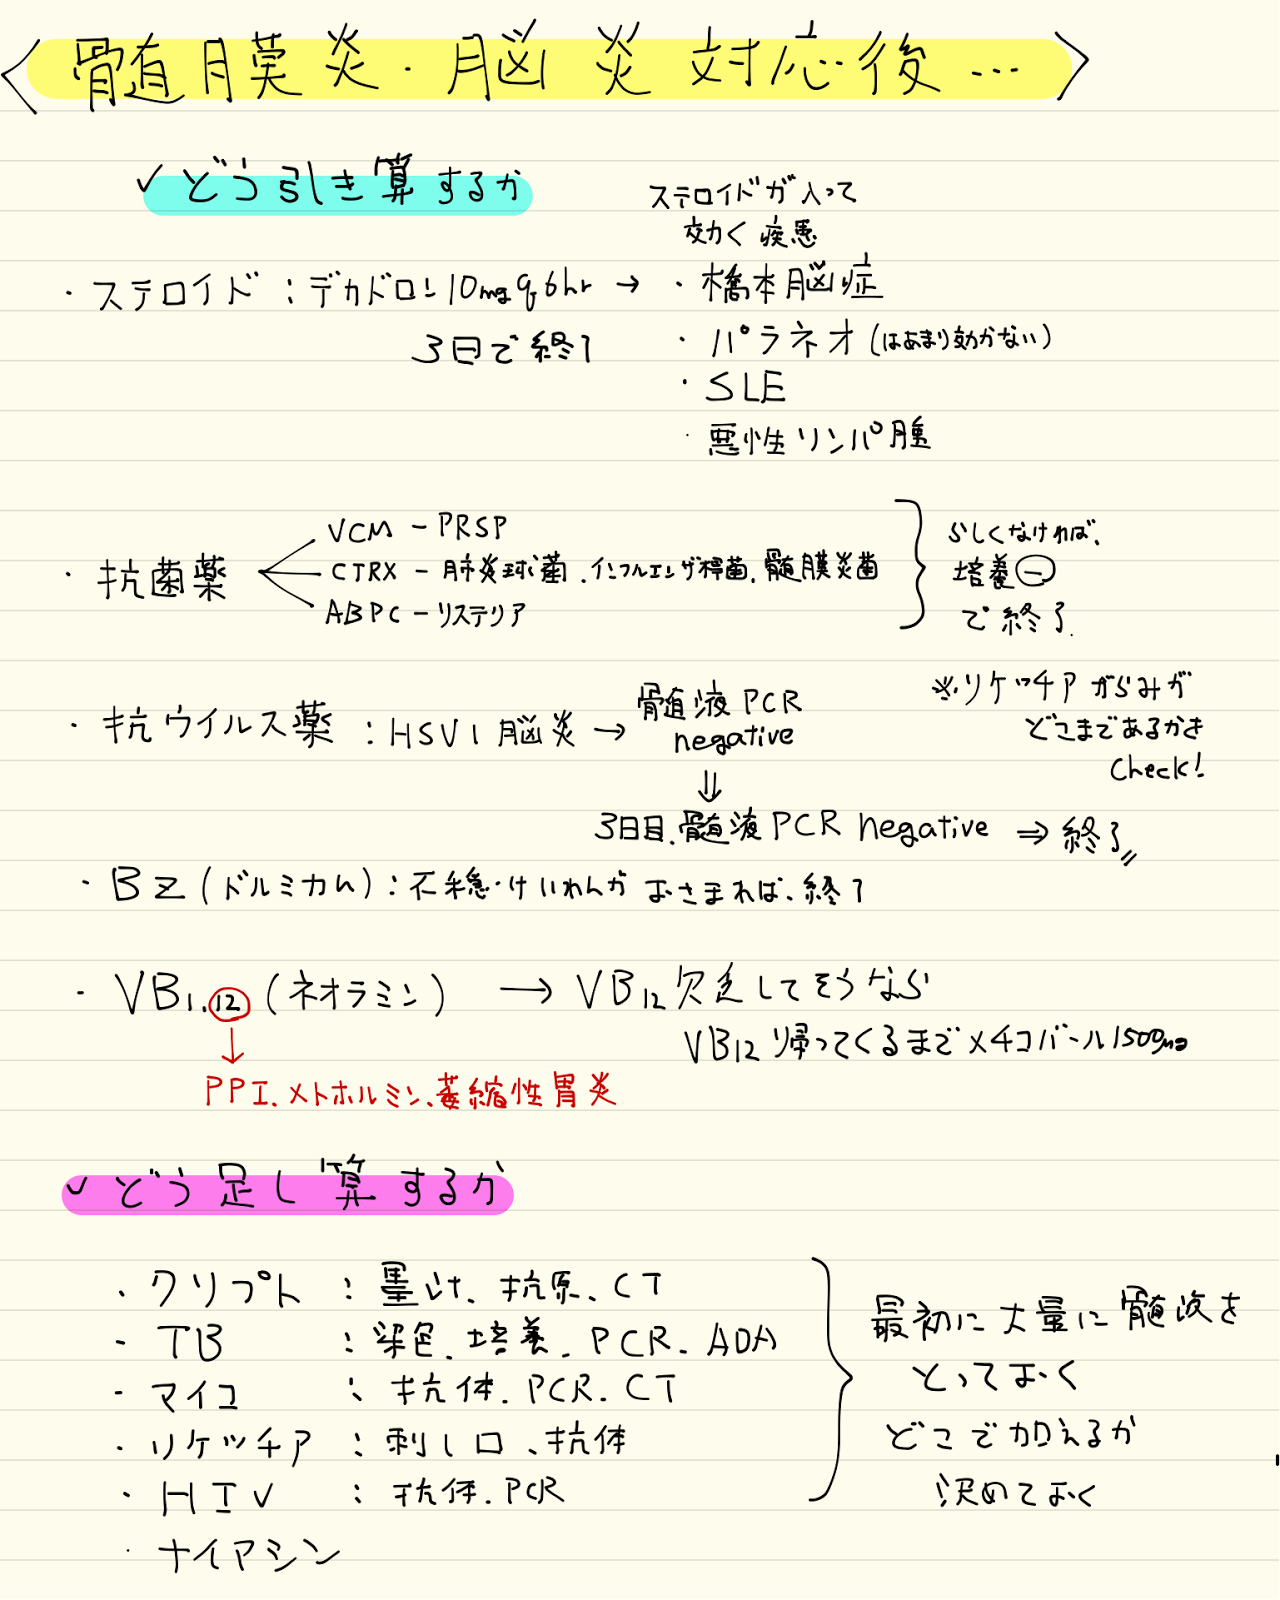 〈髄膜炎・脳炎対応後…〉
✓どう引き算するか
・ステロイド：デカドロン10mg q6hr →
3日で終了
ステロイドが入って
効く疾患
・橋本脳症
・パラネオ(はあまり効かない)
・SLE
・悪性リンパ腫
・抗菌薬
VCM － PRSP
CTRX － 肺炎球菌、インフルエンザ桿菌、髄膜炎菌
ABPC － リステリア
らしくなければ、
培養㊀
で終了.
・抗ウイルス薬：HSV1脳炎→
髄液PCR
negative
⇓
3日目.髄液PCR negative ⇒ 終了〃
※リケッチアがらみが
どこまであるかを
Check!
・BZ(ドルミカム)：不穏・けいれんが おさまれば、終了
・VB1.12(ネオラミン) → VB12欠乏してそうなら
VB12帰ってくるまでメチコバール1500μg
↓
PPI、メトホルミン、萎縮性胃炎
✓どう足し算するか
・クリプト：墨汁、抗原、CT
・TB：染色、培養、PCR、ADA
・マイコ：抗体、PCR、CT
・リケッチア：刺し口、抗体
・HIV：抗体、PCR
・ナイアシン
最初に大量に髄液を
とっておく
どこで加えるか
決めておく